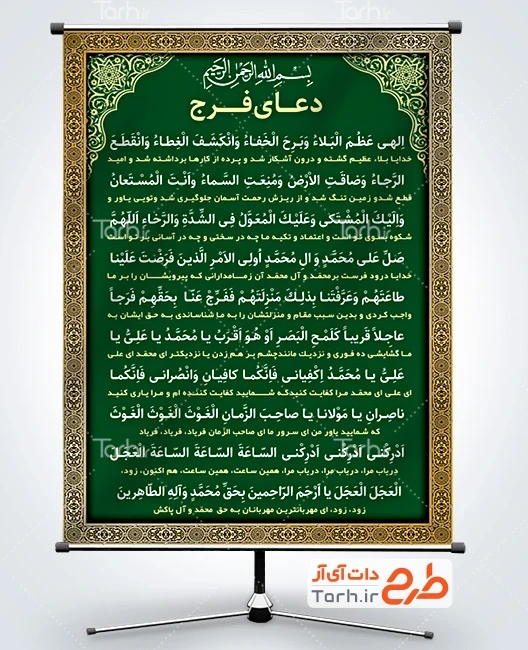 Tarh.ir
Tarh.ir
بِسْمِ اللهِ الرَّحْمنِ الرَّحیمِ
دعـای فــرج
اِلهـی عَظُمَ الْبَـلاءُ وَبَرِحَ الْخَفـاءُ وَانْکَشَـفَ الْغِطـاءُ وَانْقَطَـعَ
خدایا بـلاء عظیـم گشته و درون آشکار شـد و پـرده از کارهـا برداشته شـد و امیـد
الرَّجـاءُ وَضاقَتِ الاَْرْضُ وَمُنِعَتِ السَّماءُ وَاَنْتَ الْمُسْتَعانُ
قطع شدو زمین تنگ شد و از ریزش رحمت آسمان جلوگیری شد وتویی یاور و
وَاِلَیْکَ الْمُشْتَکی وَعَلَیْکَ الْمُعَوَّلُ فِی الشِّدَّةِ وَالرَّخاءِ اَللّهُمَّ
شکوه بسوی تو است و اعتماد و تکیه ما چه در سختی و چه در آسانی بر تو است
صَلِّ عَلی مُحَمَّدٍ وَ الِ مُحَمَّدٍ اُولِی الاَمْرِ الَّذینَ فَرَضْتَ عَلَیْنا
خدایا درود فرست برمحمد و آل محمد آن زمـامدارانی که پیرویشـان را بر ما
طاعَتَهُمْ وَعَرَّفْتَنا بِذلِـکَ مَنْزِلَتَهُـمْ فَفَـرِّجْ عَنّـا بِحَقِّهِـمْ فَرَجـاً
واجب کردی و بدین سبب مقام و منزلتشان را به ما شناساندی به حق ایشان به
عاجِـلاً قَریبـاً کَلَمْحِ الْبَصَرِ اَوْ هُوَ اَقْرَبُ یا مُحَمَّدُ یـا عَلِـیُّ یـا
ما گشایشی ده فوری و نزدیک مانندچشم بر هم زدن یا نزدیکتر ای محمد ای علی
عَلِـیُّ یـا مُحَمَّدُ اِکْفِیانی فَاِنَّکُما کافِیـانِ وَانْصُرانی فَاِنَّکُمـا
ای علی ای محمد مرا کفایت کنیدکـه شـما‌یید کفایت کننده ام و مرا یاری کنید
ناصِرانِ یـا مَوْلانـا یـا صاحِبَ الزَّمـانِ الْغَوْثَ الْغَوْثَ الْغَوْثَ
که شمایید یاور من ای سرور ما ای صاحب الزمان فریاد، فریاد، فریاد
اَدْرِکْنی اَدْرِکْنی اَدْرِکْنی السّاعَةَ السّاعَةَ السّاعَةَ الْعَجَلَ
دریاب مرا، دریاب مرا، دریاب مرا، همین ساعت، همین ساعت، هم اکنون، زود،
الْعَجَلَ الْعَجَلَ یا اَرْحَمَ الرّاحِمینَ بِحَقِّ مُحَمَّدٍ وَآلِهِ الطّاهِرینَ
زود، زود، ای مهربانترین مهربانان به حق محمد و آل پاکش
طرح دات آی‌آر
Tarh.ir